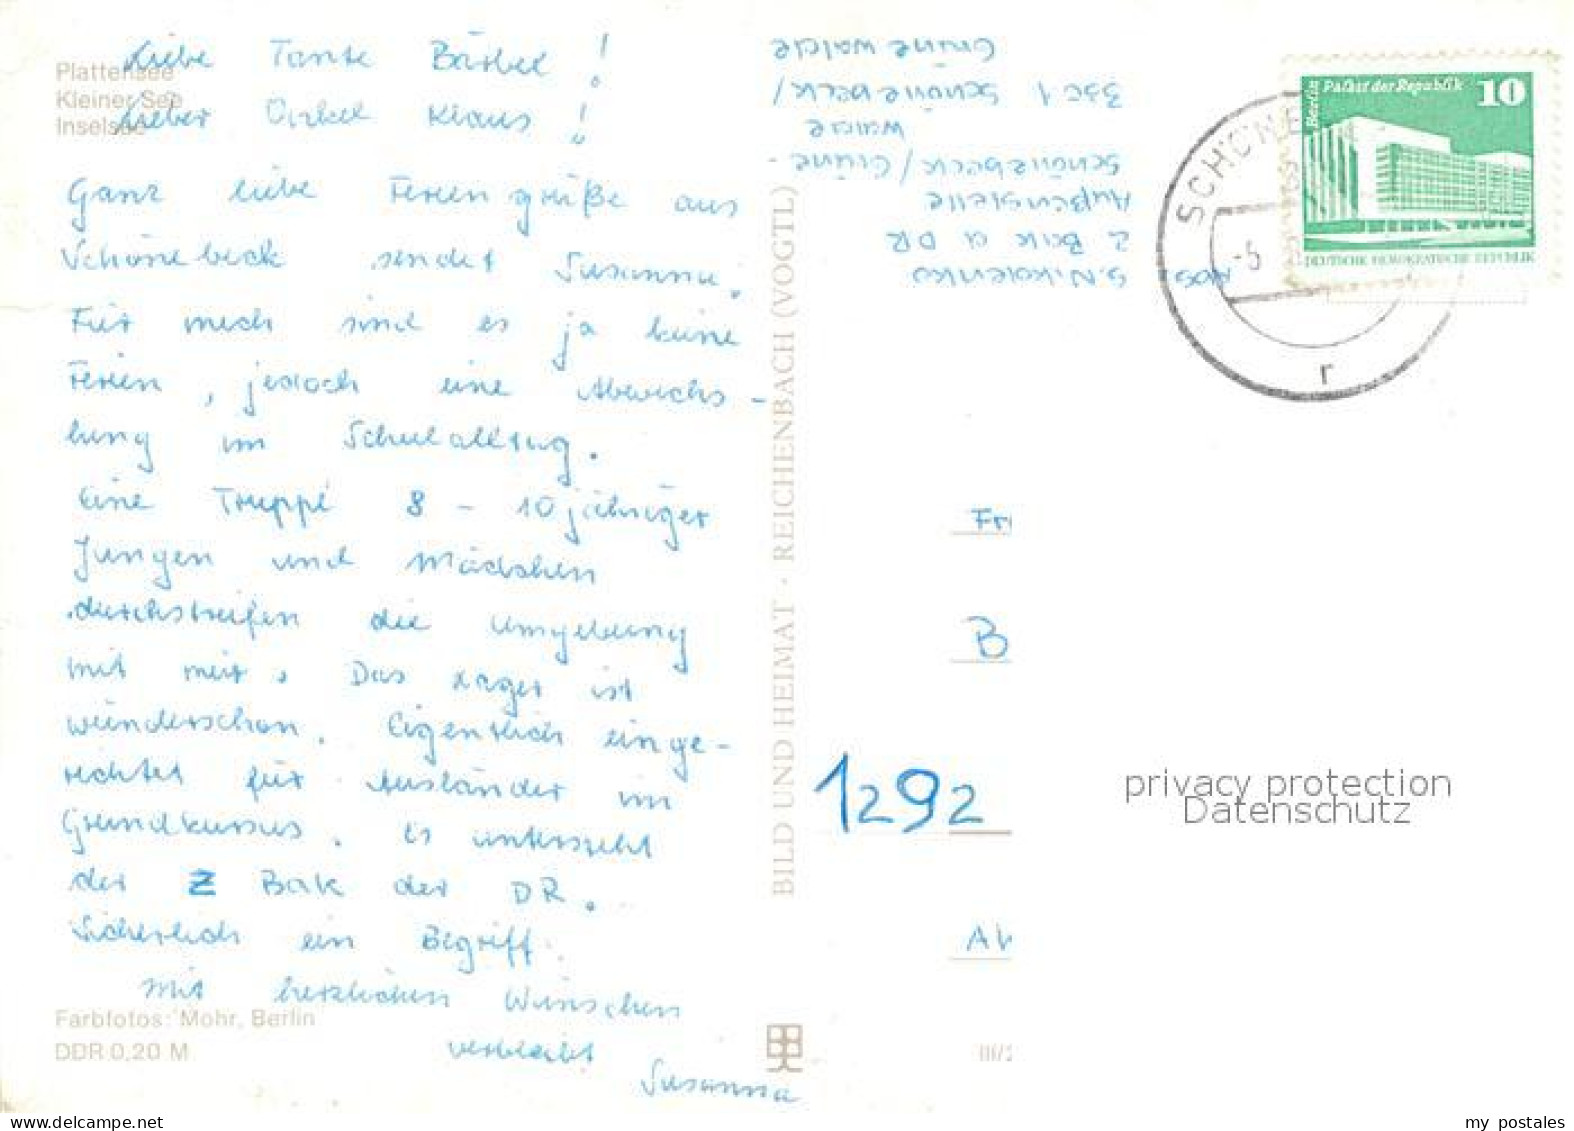 Plattensee
Kleiner See
Inselsee
Liebe Tante Bärbel!
Lieber Onkel Klaus!
Ganz liebe Feriengrüße aus
Schönebeck sendet Susanna.
Für mich sind es ja keine
Ferien, jedoch eine Abwechs-
lung im Schulalltag.
Eine Truppe 8 - 10jähriger
Jungen und Mädchen
durchstreifen die Umgebung
mit mir. Das Lager ist
wunderschön. Eigentlich einge-
richtet für Ausländer im
Grundkursus. Es untersteht
der Z Bak der DR.
Sicherlich ein Begriff.
Mit herzlichen Wünschen
verbleibt
Susanna
Farbfotos: Mohr, Berlin
DDR 0,20 M
BILD UND HEIMAT · REICHENBACH (VOGTL)
Abs. S. Nikolenko
Z Bak d DR
Außenstelle
Schönebeck/Grüne-
walde
3301 Schönebeck/
Grünewalde
SCHÖNE
-5
r
Berlin Palast der Republik 10
DEUTSCHE DEMOKRATISCHE REPUBLIK
Fr
B
1292
III/
privacy protection
Datenschutz
www.delcampe.net
my_postales